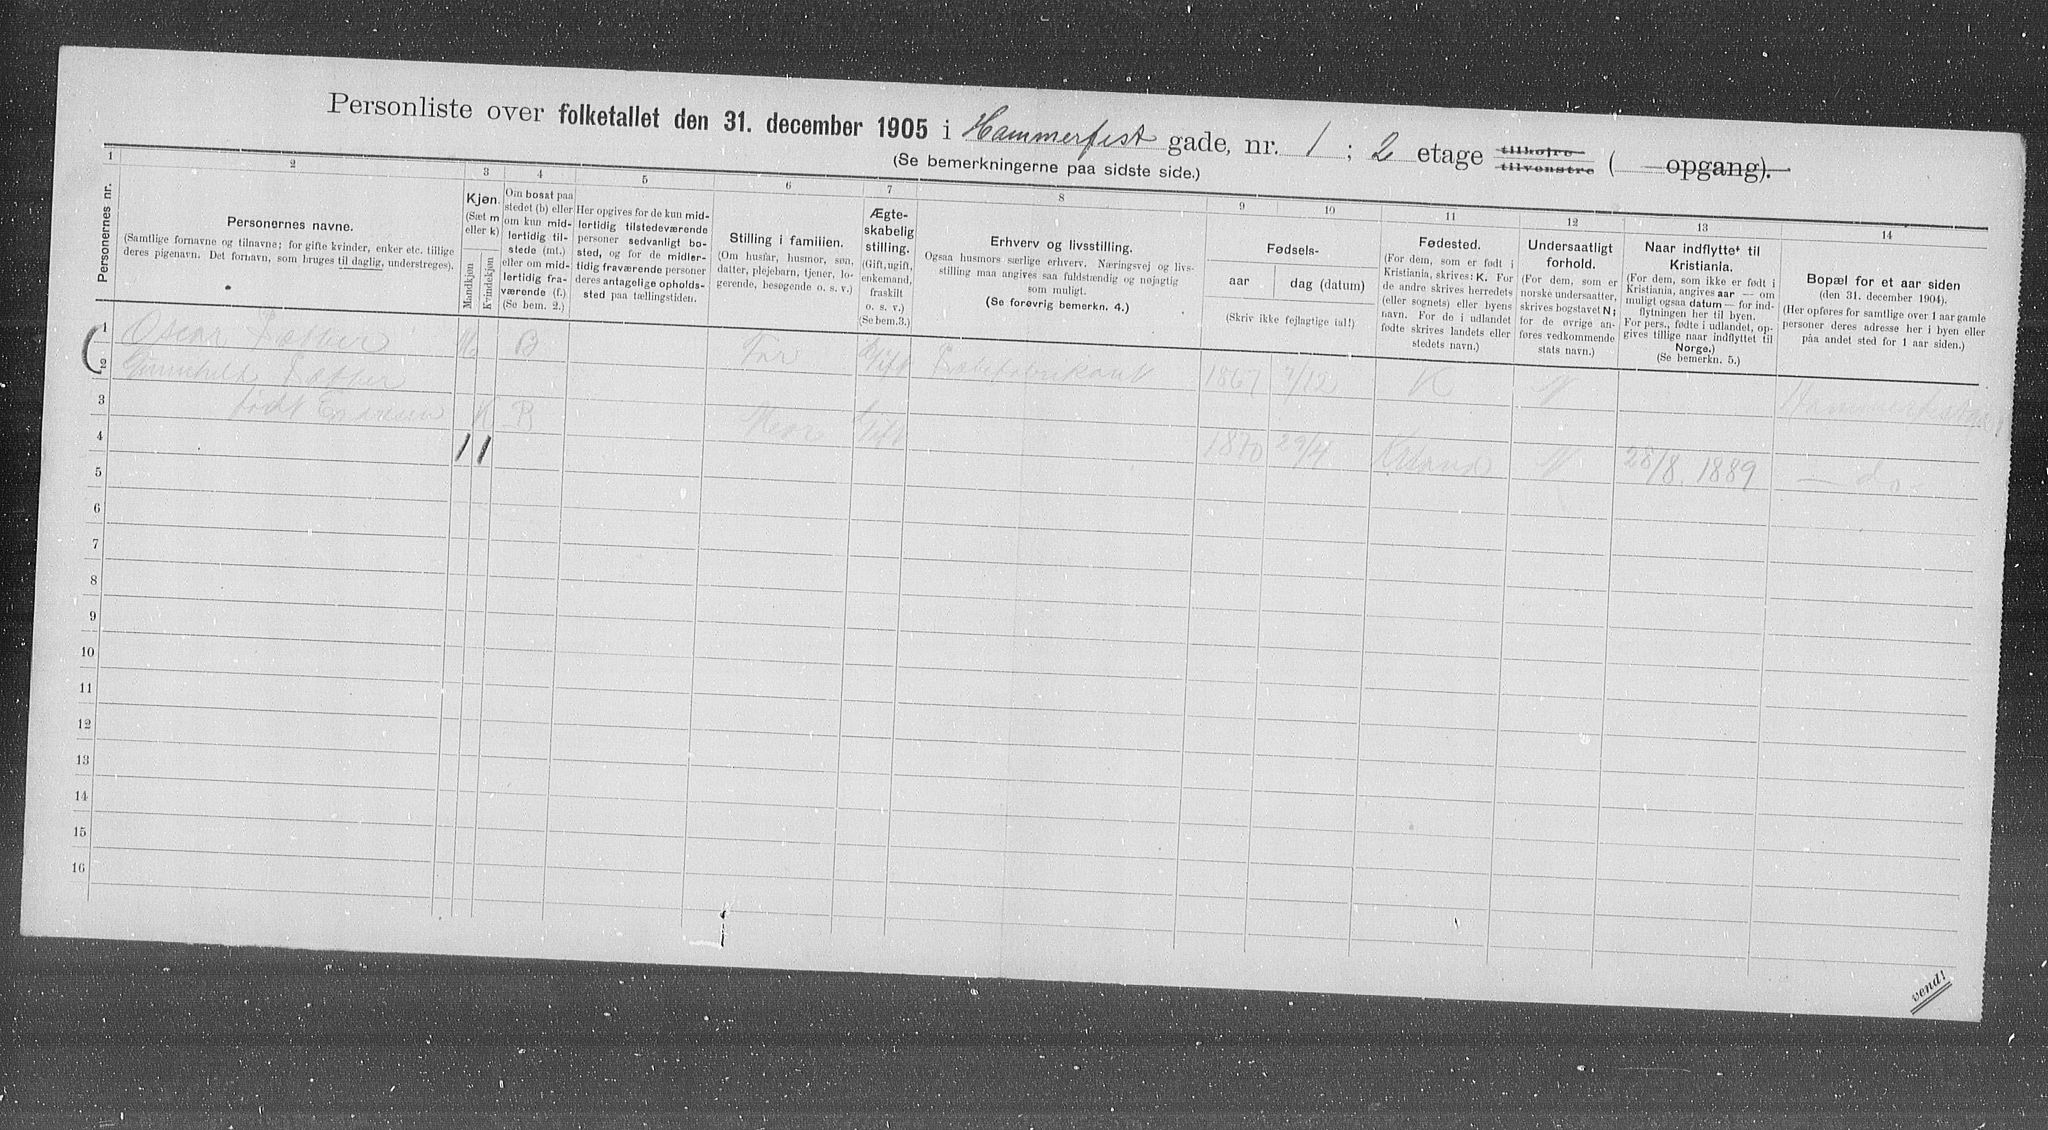 Personliste over folketallet den 31. december 1905 i Hammerfest gade, nr. 1 ; 2 etage tilhøjre tilvenstre ( opgang).
(Se bemerkningerne paa sidste side.)
1 2 3 4 5 6 7 8 9 10 11 12 13 14
Personernes nr.
Personernes navne.
(Samtlige fornavne og tilnavne; for gifte kvinder, enker etc. tillige
deres pigenavn. Det fornavn, som bruges til daglig, understreges).
Kjøn.
(Sæt m
eller k)
Mandkjøn
Kvindekjøn
Om bosat paa
stedet (b) eller
om kun mid-
lertidig til-
stede (mt.)
eller om mid-
lertidig fra-
værende (f.)
(Se bem. 2.)
Her opgives for de kun mid-
lertidig tilstedeværende
personer sedvanligt bo-
sted, og for de midler-
tidig fraværende personer
deres antagelige opholds-
sted paa tællingstiden.
Stilling i familien.
(Om husfar, husmor, søn,
datter, plejebarn, tjener, lo-
gerende, besøgende o. s. v.)
Ægte-
skabelig
stilling.
(Gift, ugift,
enkemand,
fraskilt
o. s. v.)
(Se bem.3.)
Erhverv og livsstilling.
Ogsaa husmors særlige erhverv. Næringsvej og livs-
stilling maa angives saa fuldstændig og nøjagtig
som muligt.
(Se forøvrig bemerkn. 4.)
Fødsels-
aar
dag (datum)
(Skriv ikke fejlagtige tal!)
Fødested.
(For dem, som er født i
Kristiania, skrives: K. For
de andre skrives herredets
(eller sognets) eller byens
navn. For de i udlandet
fødte skrives landets eller
stedets navn.)
Undersaatligt
forhold.
(For dem, som er
norske undersaatter,
skrives bogstavet N;
for de øvrige an-
føres vedkommende
stats navn.)
Naar indflyttet til
Kristiania.
(For dem, som ikke er født i
Kristiania, angives aar — om
muligt ogsaa datum — for ind-
flytningen her til byen.
For pers., fødte i udlandet, op-
gives tillige naar indflyttet til
Norge.)
(Se bemerkn. 5.)
Bopæl for et aar siden
(den 31. december 1904).
(Her opføres for samtlige over 1 aar gamle
personer deres adresse her i byen eller
paa andet sted for 1 aar siden.)
1 Oscar M B Far Gift 1867 7/12 K N
2 Gunnhild
3 født K B Gift 1870 29/4 N 28/8. 1889 — do —
4 1 1
5
6
7
8
9
10
11
12
13
14
15
16
vend!